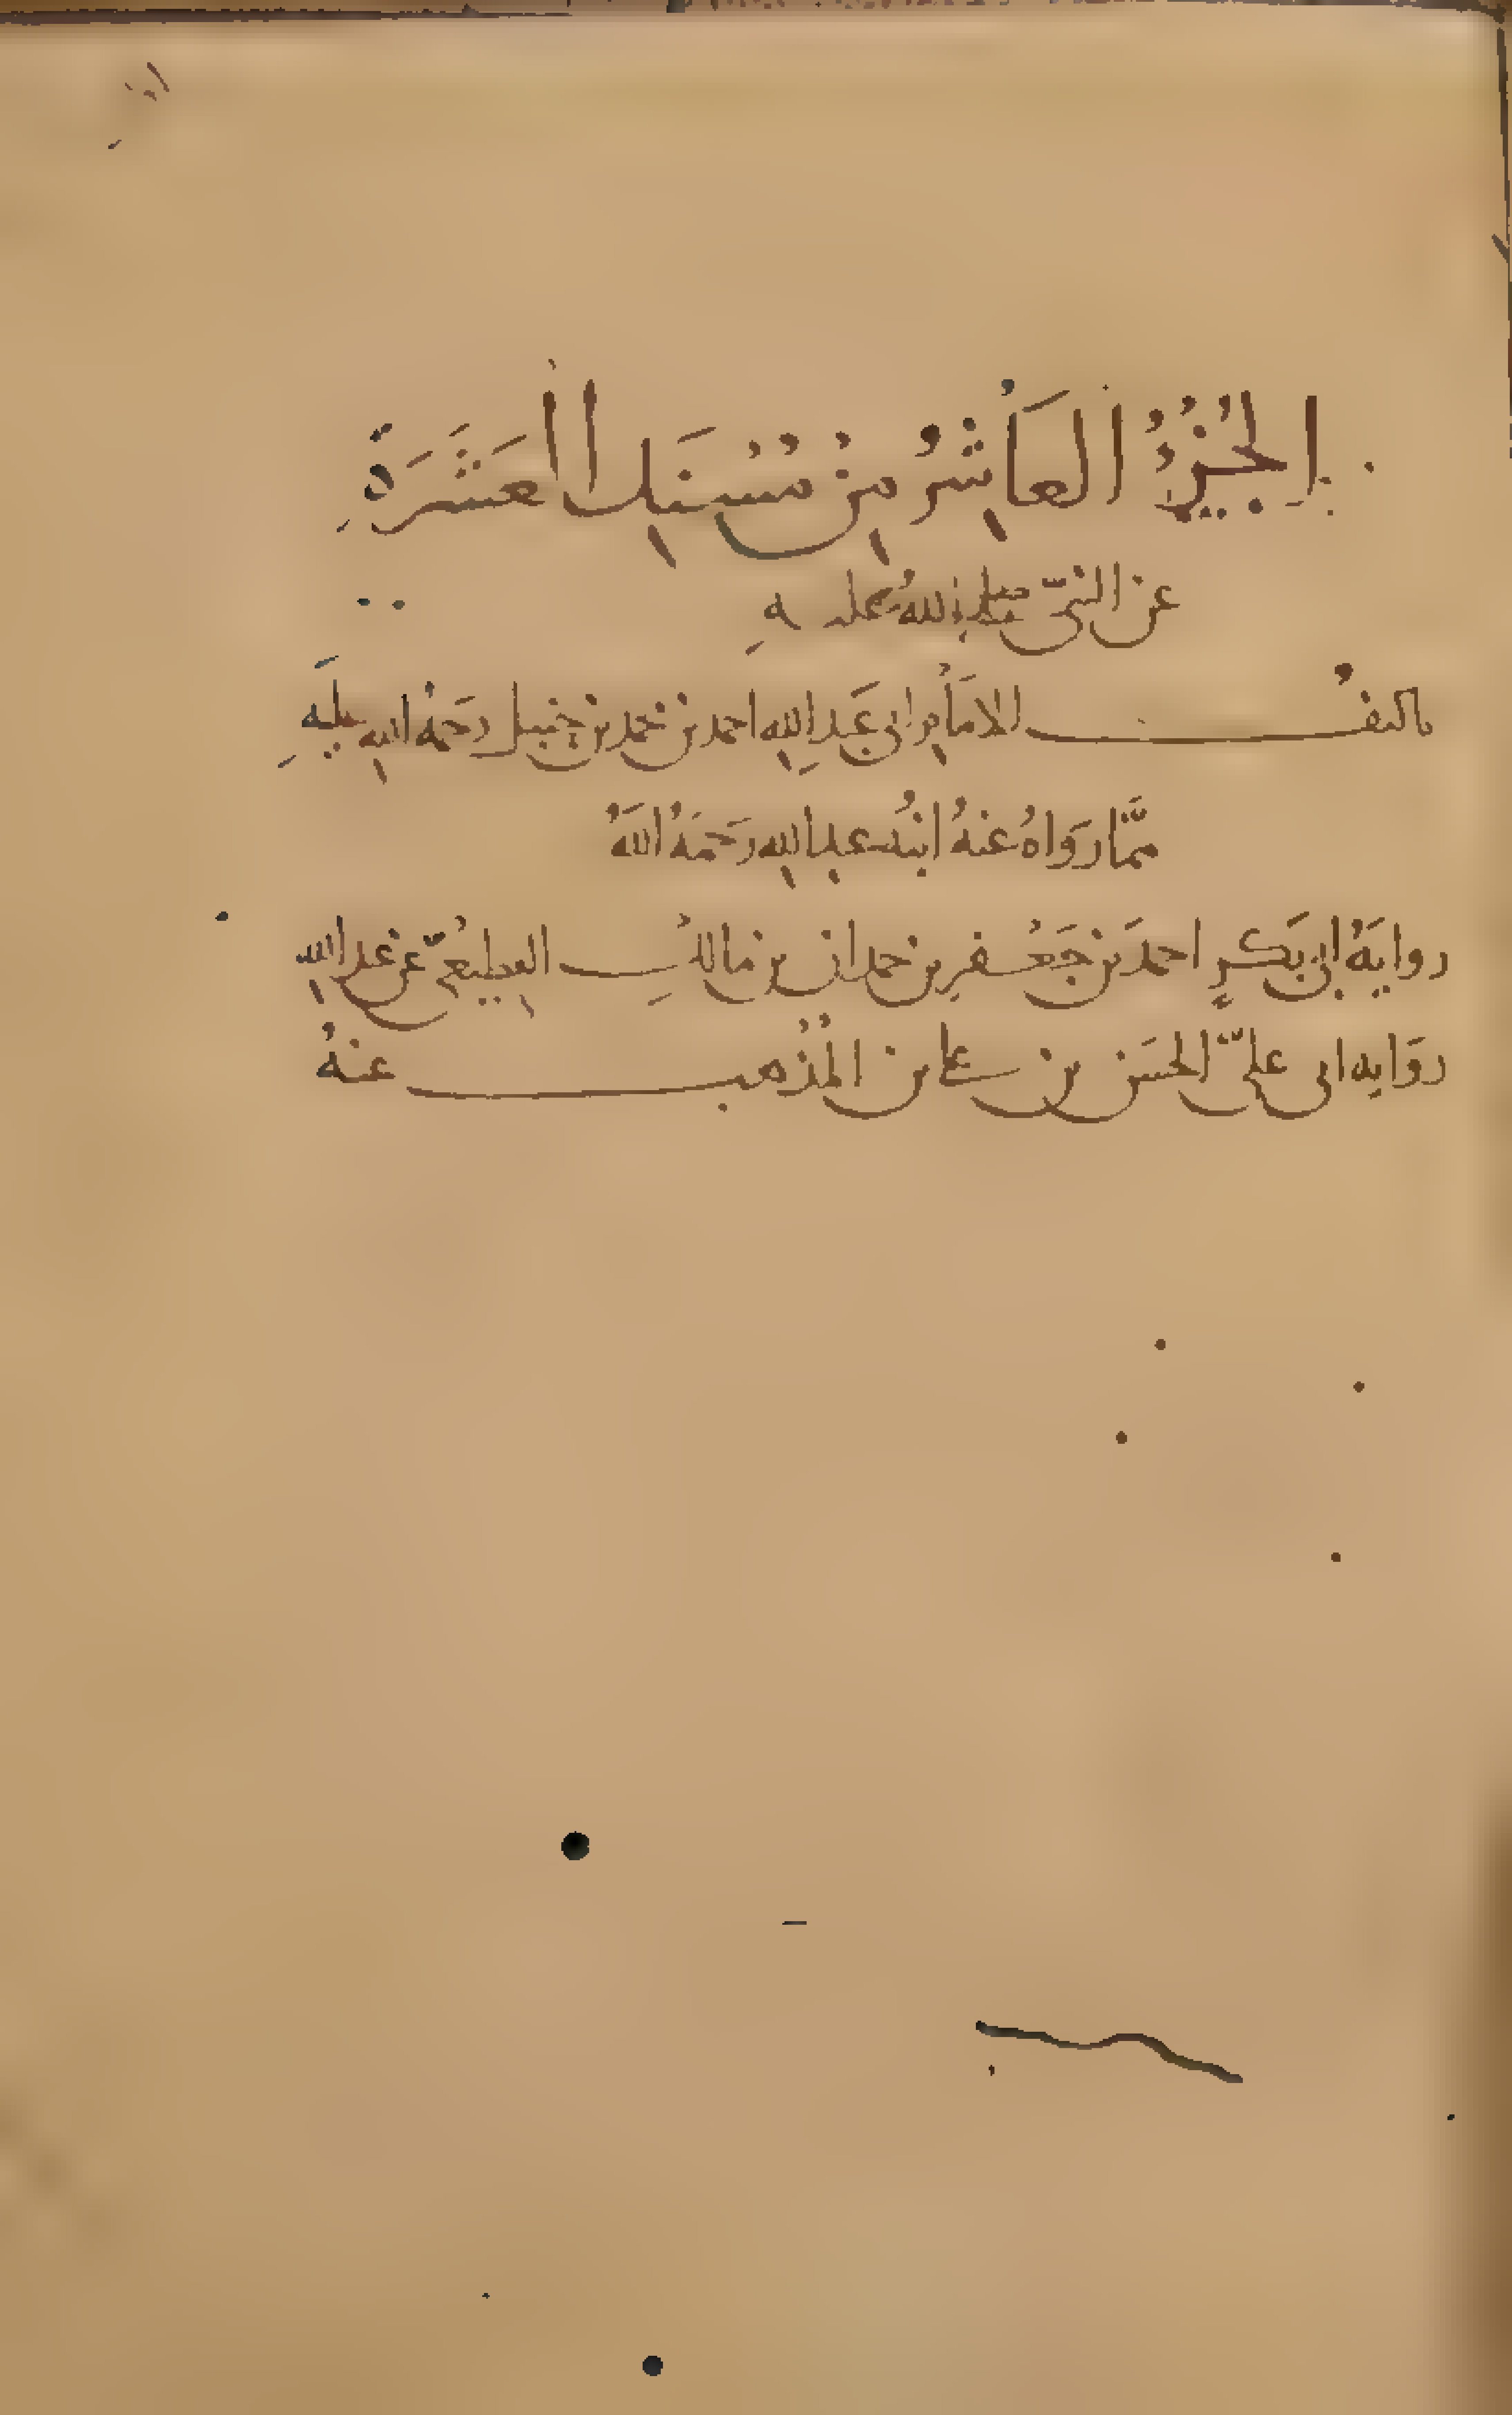 الجُزْءُ العَاشِرُ مِنْ مُسْنَدِ العَشَرَةِ
عن النبيّ صلى اللهُ عليه
تاليفُ الامَامِ ابي عَبدِ اللهِ احمد بن محمد بن حنبل رحمةُ اللهِ عليَهِ
ممَّا رَوَاهُ عنهُ ابنُه عبدِ اللهِ رَحمَهُ اللهُ
روايَةُ ابي بَكرٍ احمدَ بن جَعْفرِ بن حمدان بن مالكٍ القطيعيّ عن عبد اللهِ
روَايه ابي عليّ الحسَن بن علي بن المُذْهب عنهُ